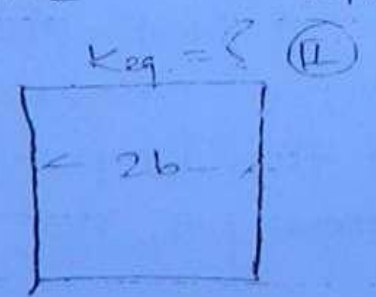 Keq. = ? II
2b